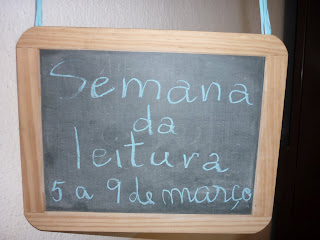 Semana
da
leitura
5 a 9 de março